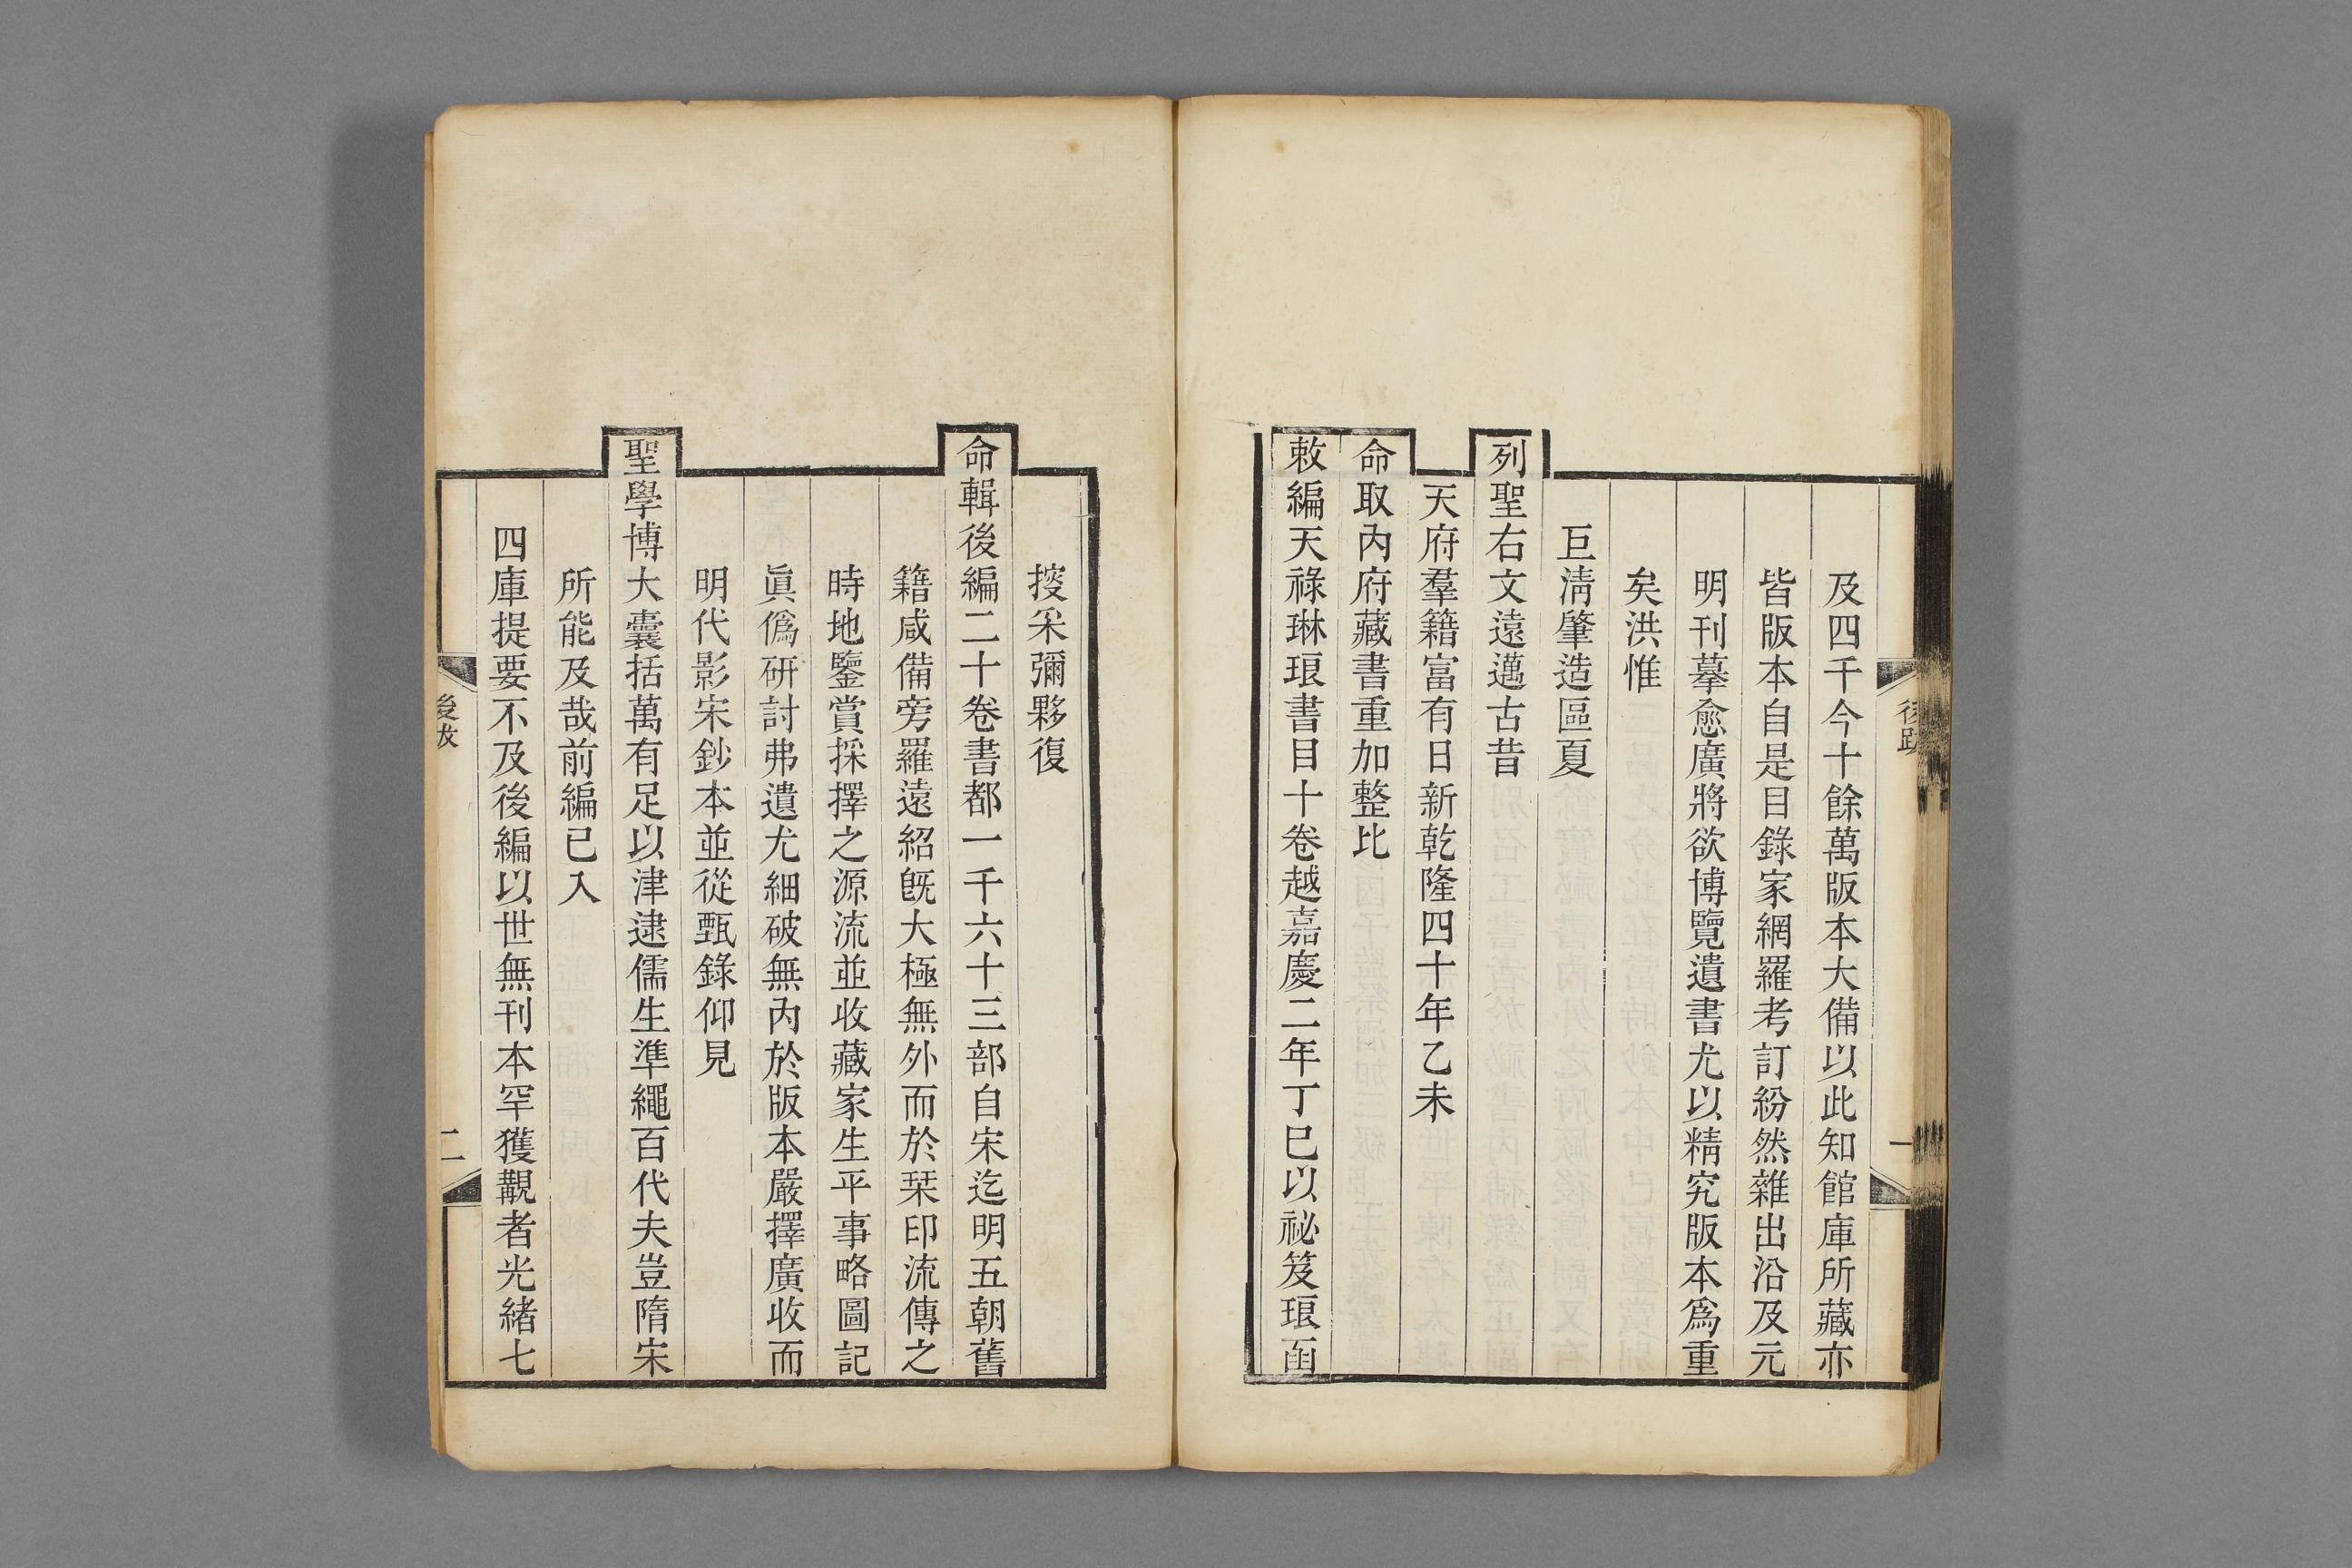 及四千今十餘萬版本大備以此知館庫所藏亦
皆版本自是目錄家網羅考訂紛然雜出沿及元
明刊摹愈廣將欲博覽遺書尤以精究版本爲重
矣洪惟
巨淸肇造區夏
列聖右文遠邁古昔
天府羣籍富有日新乾隆四十年乙未
命取內府藏書重加整比
敕編天祿琳琅書目十卷越嘉慶二年丁巳以祕笈琅函
搜采彌夥復
命輯後編二十卷書都一千六十三部自宋迄明五朝舊
籍咸備旁羅遠紹旣大極無外而於栞印流傳之
時地鑒賞採擇之源流並收藏家生平事略圖記
眞僞研討弗遺尤細破無內於版本嚴擇廣收而
明代影宋鈔本並從甄錄仰見
聖學博大囊括萬有足以津逮儒生準繩百代夫豈隋宋
所能及哉前編已入
四庫提要不及後編以世無刊本罕獲觀者光緒七
後跋
二